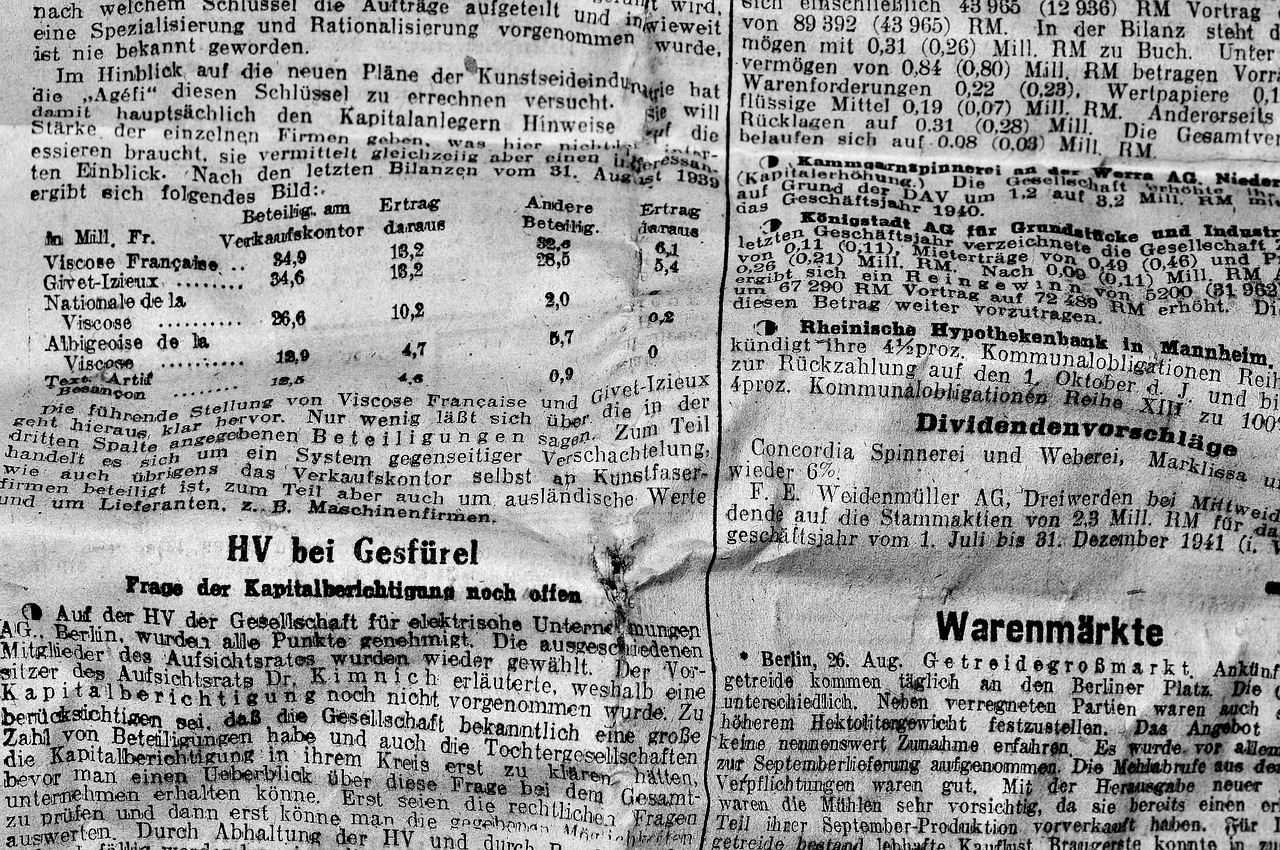 nach welchem Schlüssel die Aufträge aufgeteilt und inwieweit wird,
eine Spezialisierung und Rationalisierung vorgenommen wurde,
ist nie bekannt geworden.
Im Hinblick auf die neuen Pläne der Kunstseideindustrie hat
die „Agéfi“ diesen Schlüssel zu errechnen versucht. Sie will
damit hauptsächlich den Kapitalanlegern Hinweise auf die
Stärke der einzelnen Firmen geben, was hier nicht inter-
essieren braucht, sie vermittelt gleichzeitig aber einen interessan-
ten Einblick. Nach den letzten Bilanzen vom 31. August 1939
ergibt sich folgendes Bild:
Beteilig. am Ertrag Andere Ertrag
In Mill. Fr. Verkaufskontor daraus Beteilig. daraus
Viscose Française .. 34,9 13,2 32,6 6,1
Givet-Izieux ........ 34,6 13,2 28,5 5,4
Nationale de la
Viscose .......... 26,6 10,2 2,0 0,2
Albigeoise de la
Viscose .......... 12,9 4,7 5,7 0
Text. Artif
Besançon ........ 12,5 4,6 0,9
Die führende Stellung von Viscose Française und Givet-Izieux
geht hieraus klar hervor. Nur wenig läßt sich über die in der
dritten Spalte angegebenen Beteiligungen sagen. Zum Teil
handelt es sich um ein System gegenseitiger Verschachtelung,
wie auch übrigens das Verkaufskontor selbst an Kunstfaser-
firmen beteiligt ist, zum Teil aber auch um ausländische Werte
und um Lieferanten, z. B. Maschinenfirmen.
HV bei Gesfürel
Frage der Kapitalberichtigung noch offen
Auf der HV der Gesellschaft für elektrische Unternehmungen
AG., Berlin, wurden alle Punkte genehmigt. Die ausgeschiedenen
Mitglieder des Aufsichtsrates wurden wieder gewählt. Der Vor-
sitzer des Aufsichtsrats Dr. Kimnich erläuterte, weshalb eine
Kapitalberichtigung noch nicht vorgenommen wurde. Zu
berücksichtigen sei, daß die Gesellschaft bekanntlich eine große
Zahl von Beteiligungen habe und auch die Tochtergesellschaften
die Kapitalberichtigung in ihrem Kreis erst zu klären hätten,
bevor man einen Ueberblick über diese Frage bei dem Gesamt-
unternehmen erhalten könne. Erst seien die rechtlichen Fragen
zu prüfen und dann erst könne man die gegebenen Möglichkeiten
auswerten. Durch Abhaltung der HV und durch
sich einschließlich 43 965 (12 936) RM Vortrag
von 89 392 (43 965) RM. In der Bilanz steht
mögen mit 0,31 (0,26) Mill. RM zu Buch. Unter
vermögen von 0,84 (0,80) Mill. RM betragen Vorrä
Warenforderungen 0,22 (0,23), Wertpapiere 0,1
flüssige Mittel 0,19 (0,07) Mill. RM. Andererseits
Rücklagen auf 0.31 (0,28) Mill. Die Gesamtver
belaufen sich auf 0.08 (0,03) Mill. RM.
Kammgarnspinnerei an der Werra AG, Nieder
(Kapitalerhöhung.) Die Gesellschaft erhöhte ihr
auf Grund der DAV um 1,2 auf 3,2 Mill. RM mi
das Geschäftsjahr 1940.
Königstadt AG für Grundstücke und Industri
letzten Geschäftsjahr verzeichnete die Gesellschaft
von 0,11 (0,11), Mieterträge von 0,49 (0,46) und
von (0,21) Mill. RM. Nach 0,09 (0,11) Mill. RM
0,26 ergibt sich ein Reingewinn von 5200 (31 962)
um 67 290 RM Vortrag auf 72 489 RM erhöht. Die
diesen Betrag weiter vorzutragen.
Rheinische Hypothekenbank in Mannheim.
kündigt ihre 4½proz. Kommunalobligationen Reih
zur Rückzahlung auf den 1. Oktober d. J. und bi
4proz. Kommunalobligationen Reihe XIII zu 100%
Dividendenvorschläge
Concordia Spinnerei und Weberei, Marklissa
wieder 6%.
F. E. Weidenmüller AG, Dreiwerden bei Mittweid
dende auf die Stammaktien von 2,3 Mill. RM für da
geschäftsjahr vom 1. Juli bis 31. Dezember 1941 (i.
Warenmärkte
* Berlin, 26. Aug. Getreidegroßmarkt. Ankünf
getreide kommen täglich an den Berliner Platz. Die
unterschiedlich. Neben verregneten Partien waren auch
höherem Hektolitergewicht festzustellen. Das Angebot
keine nennenswert Zunahme erfahren. Es wurde vor allem
zur Septemberlieferung aufgenommen. Die Mehlabrufe aus de
Verpflichtungen waren gut. Mit der Herausgabe neuer
waren die Mühlen sehr vorsichtig, da sie bereits einen er
Teil ihrer September-Produktion vorverkauft haben. Für
getreide bestand lebhafte Kauflust. Braugerste konnte in